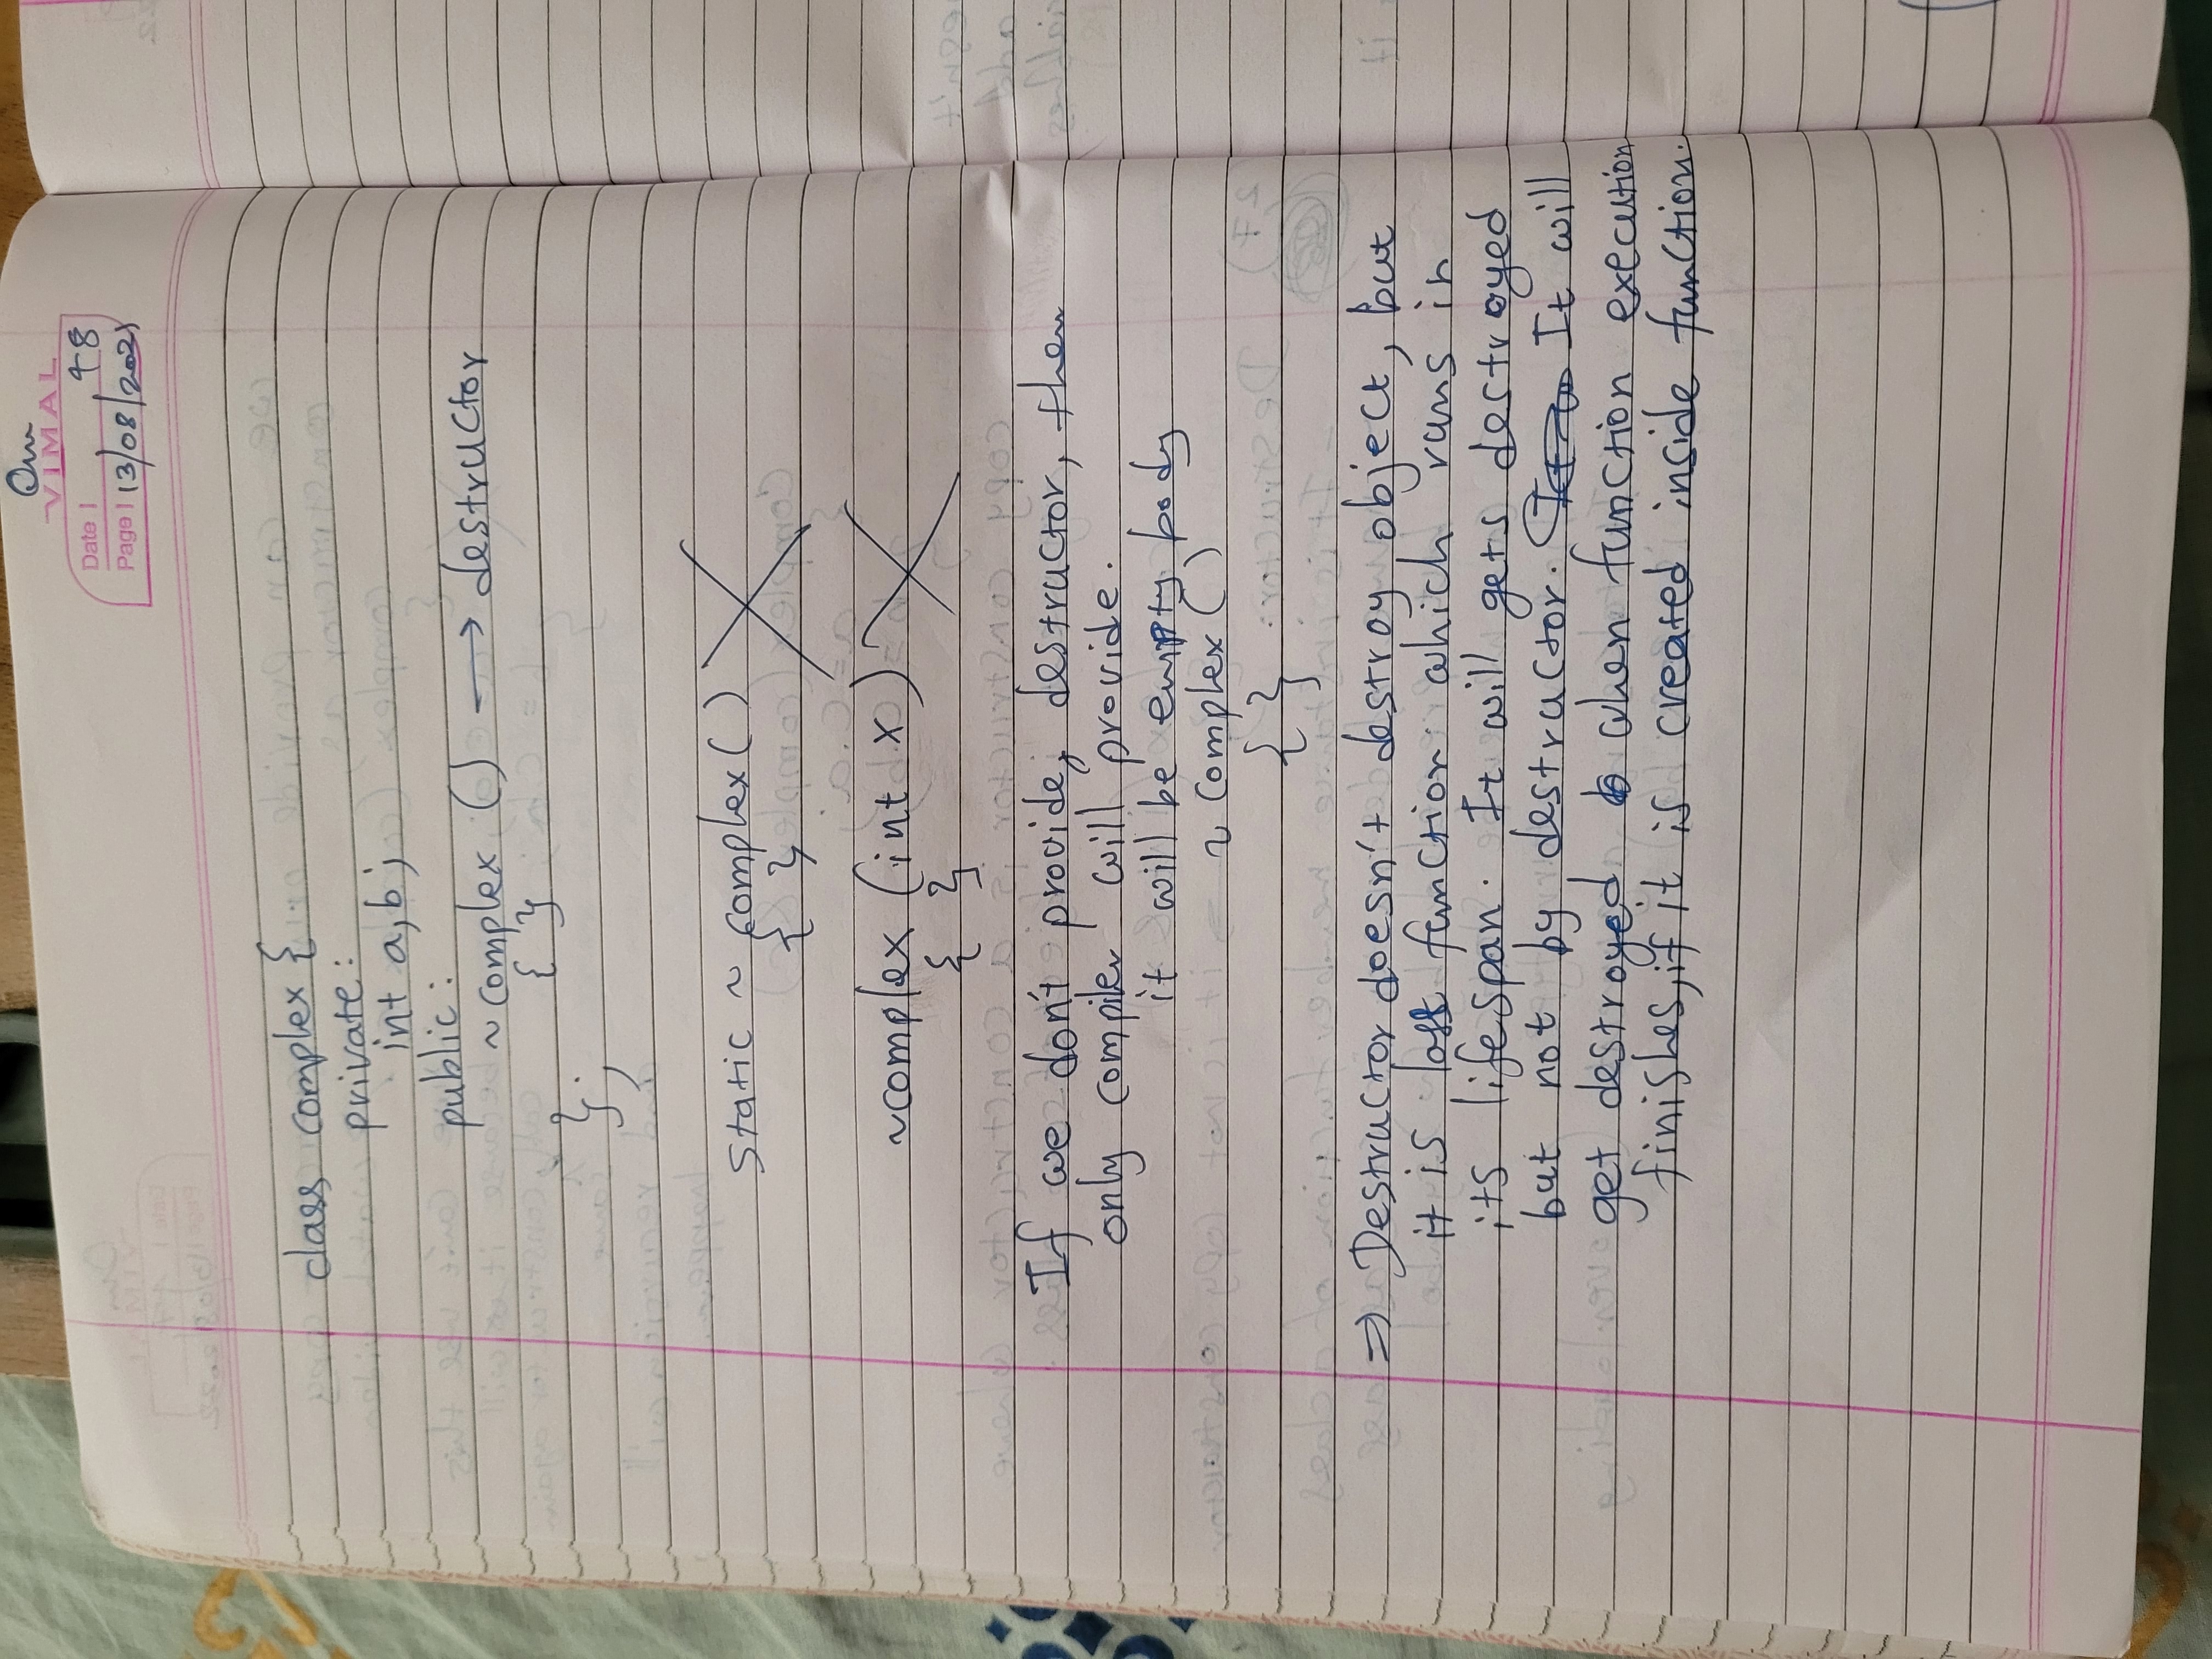 Om
VIMAL
Date | 48
Page | 13/08/2021
class complex {
private:
int a,b;
public:
~complex () → destructor
{ }
};
static ~ complex()
{ }
~complex (int x)
{ }
If we don't provide, destructor, then
only compiler will provide.
it will be empty body
~ complex()
{ }
⇒ Destructor doesn't destroy object, but
it is last function which runs in
its lifespan. It will gets destroyed
but not by destructor. It will
get destroyed when function execution
finishes, if it is created inside function.